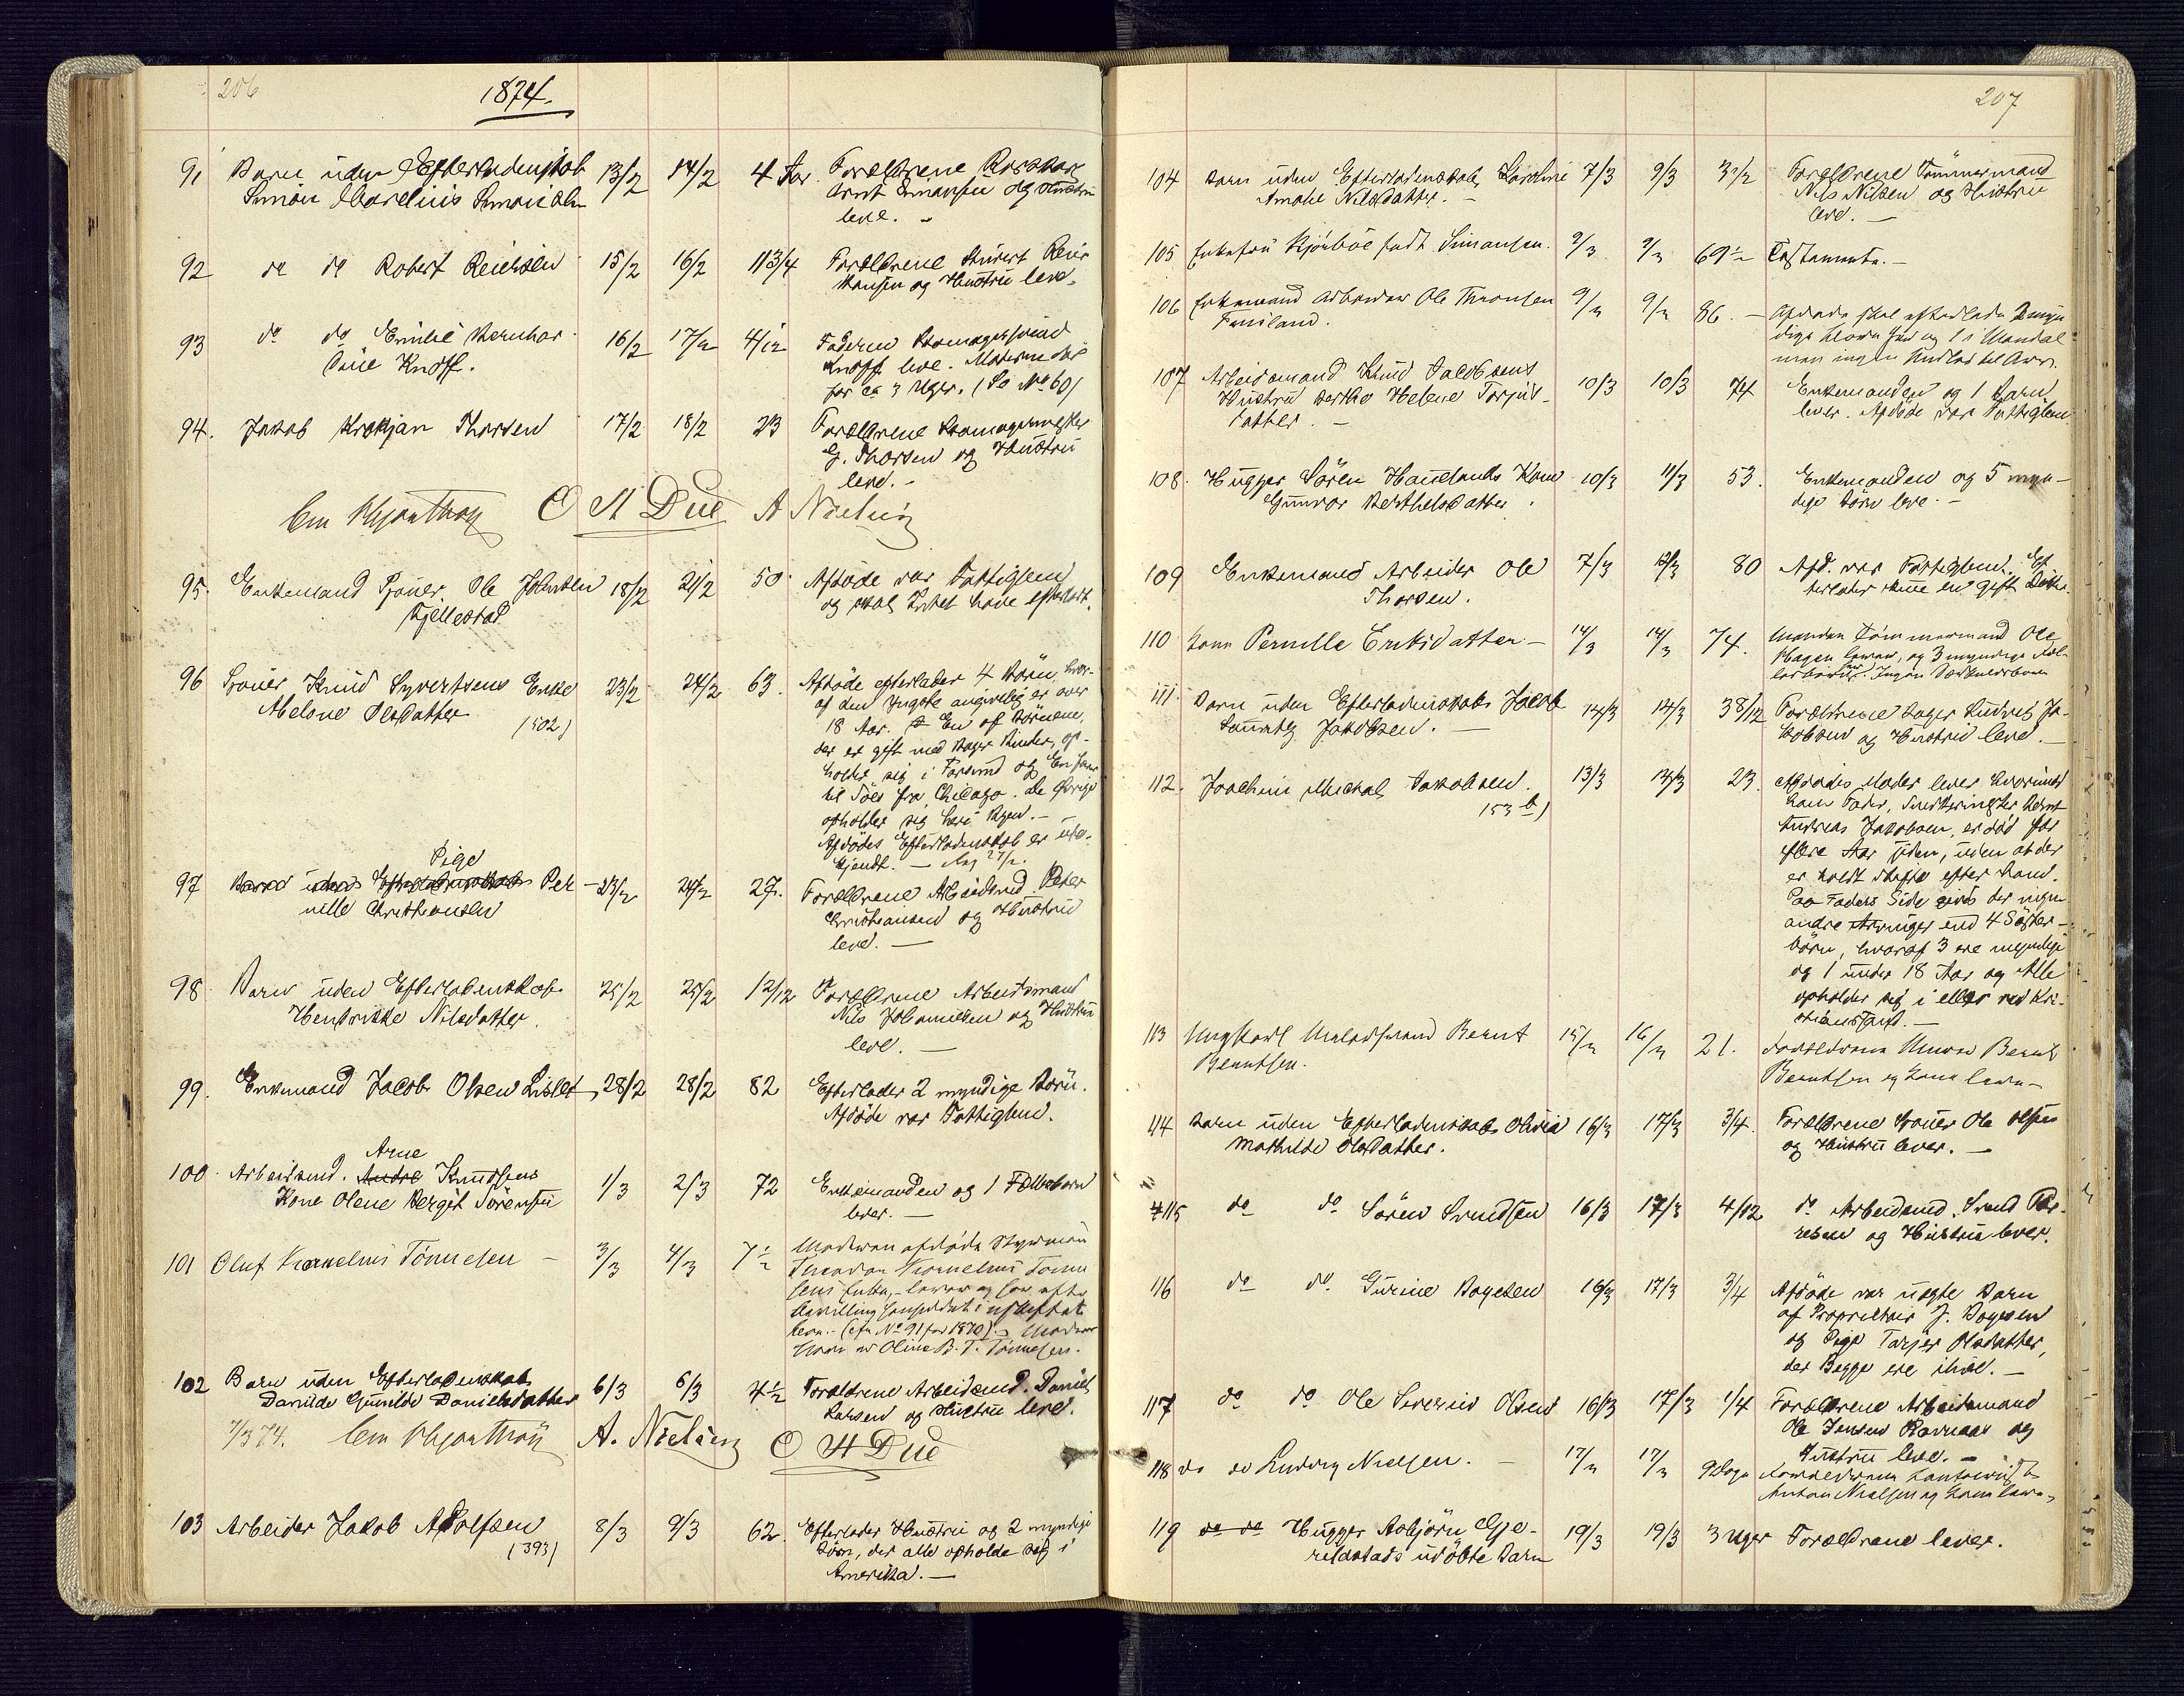 206
1874.
91 Barn uden Efterladenskab 13/2 14/2 4 Aar. Forældrene
Simon Marelius Simonsen Arnt Simonsen og Hustru
leve. -
92 do do Robert Reiersen 15/2 16/2 1 13/4 Forældrene Reier
Hansen og Hustru leve.
93 do do Emilie Bernhar- 16/2 17/2 4/12 Faderen Skomagersvend
dine Knoff. Knoff leve. Moderen død
for ca 3 Uger. (Se No 60)
94. Jakob Kristjan Thorsen 17/2 18/2 23 Forældrene Skomagermester
G. Thorsen og Hustru
leve. -
O H Due A Nielsen
95. Enkemand Ole Johnsen 18/2 21/2 50 Afdøde var Fattiglem
Fjellestad og skal Intet have efterladt.
96 Knud Syvertsens Enke 23/2 24/2 63. Afdøde efterlader 4 Børn, hvor-
Abelone Olsdatter af den yngste angivelig er over
(502) 18 Aar. En af Børnene,
der er gift med Binder, op-
holder sig i Farsund og En farer
til Søes fra Chicago. De Øvrige
opholder sig her i Byen. -
Afdødes Efterladenskab er ube-
kjendt. -
Pige
97 Barn uden Efterladenskab Per- 23/2 24/2 27. Forældrene Arbeidsmd. Peter
nille Christiansen Christiansen og Hustru
leve. -
98 Barn uden Efterladenskab 25/2 25/2 12/12 Forældrene Arbeidsmand
Henrikke Nilsdatter. Nils Johannesen og Hustru
leve. -
99. Enkemand Jacob Olsen Lislet 28/2 28/2 82 Efterlader 2 myndige Børn.
Afdøde var Fattiglem.
Arne
100 Arbeidsmd. Andre Knudsens 1/3 2/3 72 Enkemanden og 1 Fællesbarn
Kone Olene Bergit Sørensen lever. -
101 Oluf Kornelius Tönnesen - 3/3 4/3 7 1/2 Moderen afdøde Styrmand
Kornelius Tönne-
sens Enke, - lever og har efter
Bevilling hensiddet i uskiftet
Bo. - (cfr No 91 for 1870) - Moderens
Navn er Oline B. T. Tönnesen.
102 Barn uden Efterladenskab 6/3 6/3 4 1/2 Forældrene Arbeidsmd. Daniel
Danilde Gunilde Danielsdatter Larsen og Hustru leve.
7/3 74. A. Nielsen O H Due
103 Arbeider Jakob Adolfsen 8/3 9/3 62. Efterlader Hustru og 2 myndige
(393) Børn, der alle opholde sig i
Amerika. -
207
104 Barn uden Efterladenskab, Karoline 7/3 9/3 3 1/2 Forældrene Tømmermand
Amalie Nilsdatter. - Nils Nilsen og Hustru
leve. -
105 Enkefru Kjönböe født Simonsen. 9/3 9/3 69 1/2 Testamente. -
106 Enkemand Arbeider Ole Thronsen 9/3 9/3 86. - Afdøde skal efterlade 2 myn
dige Børn her og 1 i Mandal
men ingen Midler til Arv.
107 Arbeidsmand Knud Jacobsens 10/3 10/3 74 Enkemanden og 1 Barn
Hustru Berthe Helene Torjus- lever. Afdöde var Fattiglem.
datter. -
108. Hugger Sören Haualands Kone 10/3 11/3 53. Enkemanden og 5 myn-
Gunvor Berthelsdatter. dige Børn leve. -
109 Enkemand Arbeider Ole 7/3 12/3 80 Afd. var Fattiglem. Ef-
Thorsen. terlader kun en gift Datter.
110 Kone Pernille Eriksdatter - 14/3 14/3 74. Manden Tömmermand Ole
Hagen lever, og 3 myndige Fæl-
lesbørn. Ingen
111. Barn uden Efterladenskab Jacob 14/3 14/3 3 8/12 Forældrene Bager Ludvig Ja-
Jakobsen. - kobsen og Hustru leve. -
112. Joachim Mickal Jakobsen. 13/3 13/3 23. Afdødes Moder lever hvorimod
153 b) hans Fader, Bernt
Andreas Jakobsen, er død for
flere Aar siden, uden at der
er holdt Skifte efter ham.
Paa Faders Side gives der ingen
andre Arvinger end 4 Søster-
børn, hvoraf 3 ere myndige
og 1 under 18 Aar og Alle
opholder sig i eller ved Kri-
stianssand. -
113 Ungkarl Malersvend Bernt 15/3 16/3 21. Forældrene Murer Bernt
Berntsen. Berntsen og Kone leve -
114 Barn uden Efterladenskab Olivia 16/3 17/3 3/4. Forældrene Ole Olsen
Mathilde Olsdatter. og Hustru lever. -
115 do do Sören Svendsen 16/3 17/3 4/12 do Arbeidsmd. Svend
og Hustru lever.
116 do do Gurine Boyesen 16/3 17/3 3/4 Afdøde var uægte Barn
af Proprietair J. Boyesen
og Pige Tarjer Olsdatter,
der Begge ere ilive. -
117 do do Ole Severin Olsen 16/3 17/3 1/4 Forældrene Arbeidsmand
Ole Jensen Ravnaas og
Hustru leve. -
118 do do Ludvig Nielsen. - 17/3 17/3 9 Dage Forældrene
Anton Nielsen og Kone leve -
119 do do Hugger Asbjörn Gje- 19/3 19/3 3 Uger Forældrene lever.
relsstads udöbte Barn